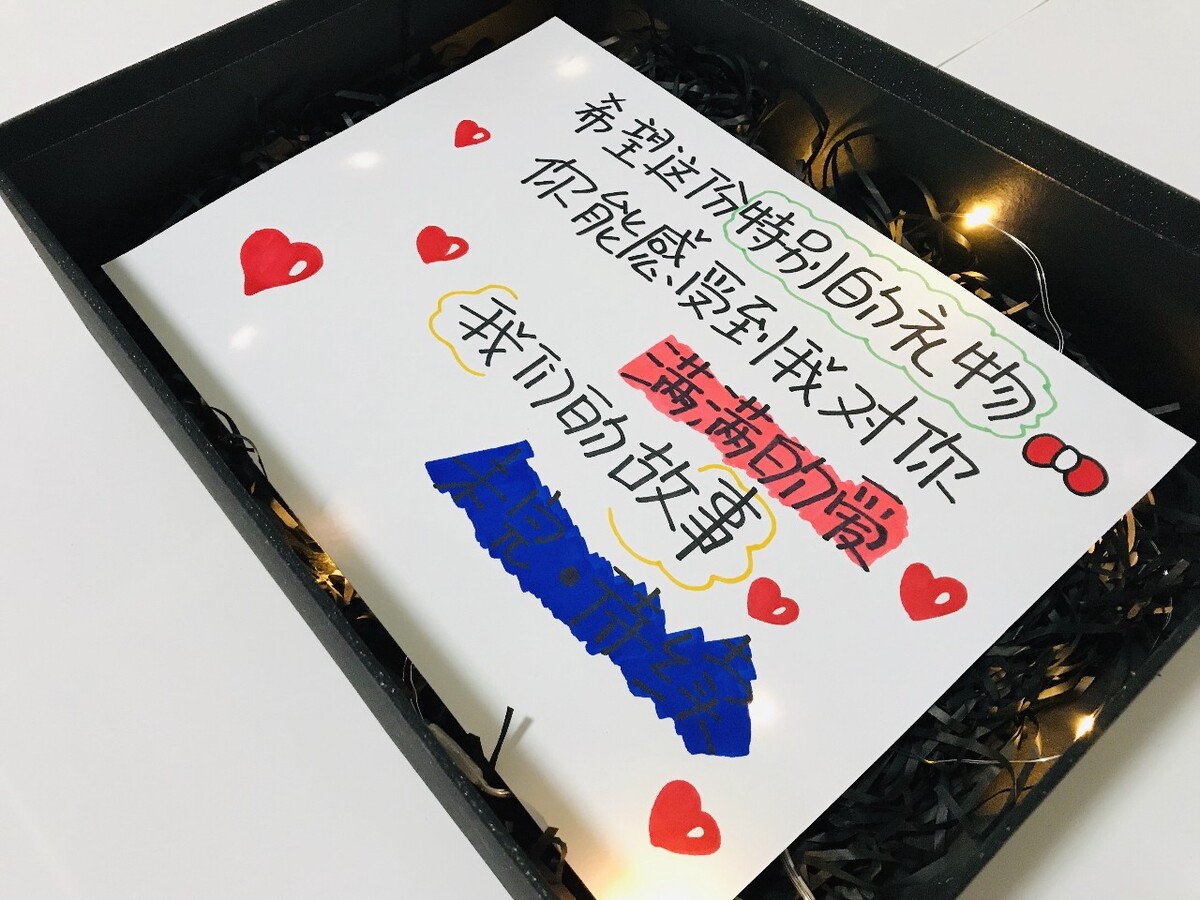 希望这份特别的礼物
你能感受到我对你
满满的爱
我们的故事
未完·待续